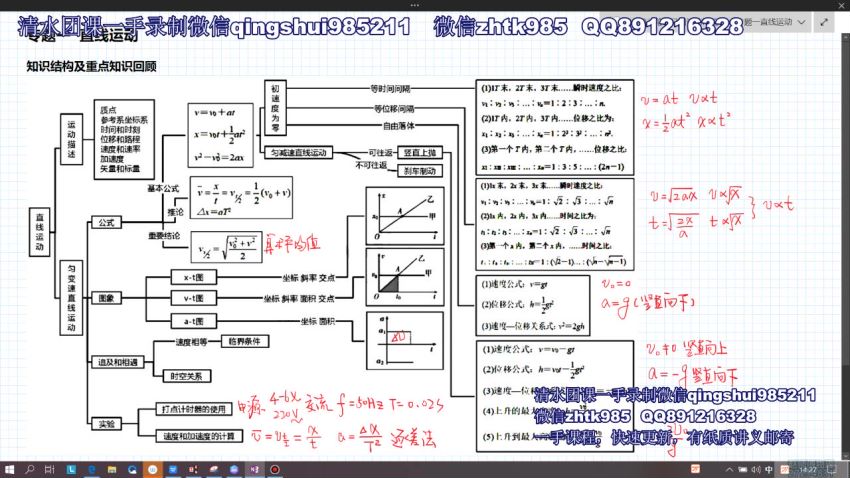 专题一直线运动
清水团课一手录制微信qingshui985211 微信zhtk985 QQ891216328
专题一直线运动
知识结构及重点知识回顾
直线运动
运动描述
质点
参考系坐标系
时间和时刻
位移和路程
速度和速率
加速度
矢量和标量
匀变速直线运动
公式
基本公式
v=v₀+at
x=v₀t+½at²
v²−v₀²=2ax
推论
v̄=x/t=v_{t/2}=½(v₀+v)
△x=aT²
重要结论
v_{x/2}=√((v₀²+v²)/2)
初速度为零
等时间间隔
等位移间隔
自由落体
匀减速直线运动
可往返
竖直上抛
不可往返
刹车制动
图象
x-t图
坐标 斜率 交点
v-t图
坐标 斜率 面积 交点
a-t图
坐标 面积
x
x₀
A
乙
甲
O
t
v
v₀
A
乙
甲
O
t₀
t
a
a₁
a₂
追及和相遇
速度相等
临界条件
时空关系
实验
打点计时器的使用
速度和加速度的计算
电源 4-6V 交流 f=50Hz T=0.02s
220V
a=Δx/T² 逐差法
(1)1T末，2T末，3T末……瞬时速度之比：
v₁∶v₂∶v₃∶…∶vₙ=1∶2∶3∶…∶n.
(2)1T内，2T内，3T内……位移之比为：
x₁∶x₂∶x₃∶…∶xₙ=1∶2²∶3²∶…∶n².
(3)第一个T内，第二个T内，……位移之比：
xⅠ∶xⅡ∶xⅢ∶…∶x_N=1∶3∶5∶…∶(2n−1)
(1)1x末，2x末，3x末……瞬时速度之比：
v₁∶v₂∶v₃∶…∶vₙ=1∶√2∶√3∶…∶√n
(2)1x内，2x内，3x内……时间之比为：
t₁∶t₂∶t₃∶…∶tₙ=1∶√2∶√3∶…∶√n
(3)第一个x内，第二个x内，……时间之比：
(1)速度公式：v=gt
(2)位移公式：h=½gt²
(3)速度—位移关系式：v²=2gh
(1)速度公式：v=v₀−gt
(2)位移公式：h=v₀t−½gt²
(3)速度—位
(4)上升的最大
(5)上升到最
v=at v∝t
x=½at² x∝t²
v=√(2ax) v∝√x
t=√(2x/a) t∝√x
v∝t
v₀=0
a=g(竖直向下)
v₀≠0 竖直向上
a=-g 竖直向下
清水团课一手录制微信qingshui985211
微信zhtk985 QQ891216328
一手课程，快速更新，有纸质讲义邮寄
中
14:27